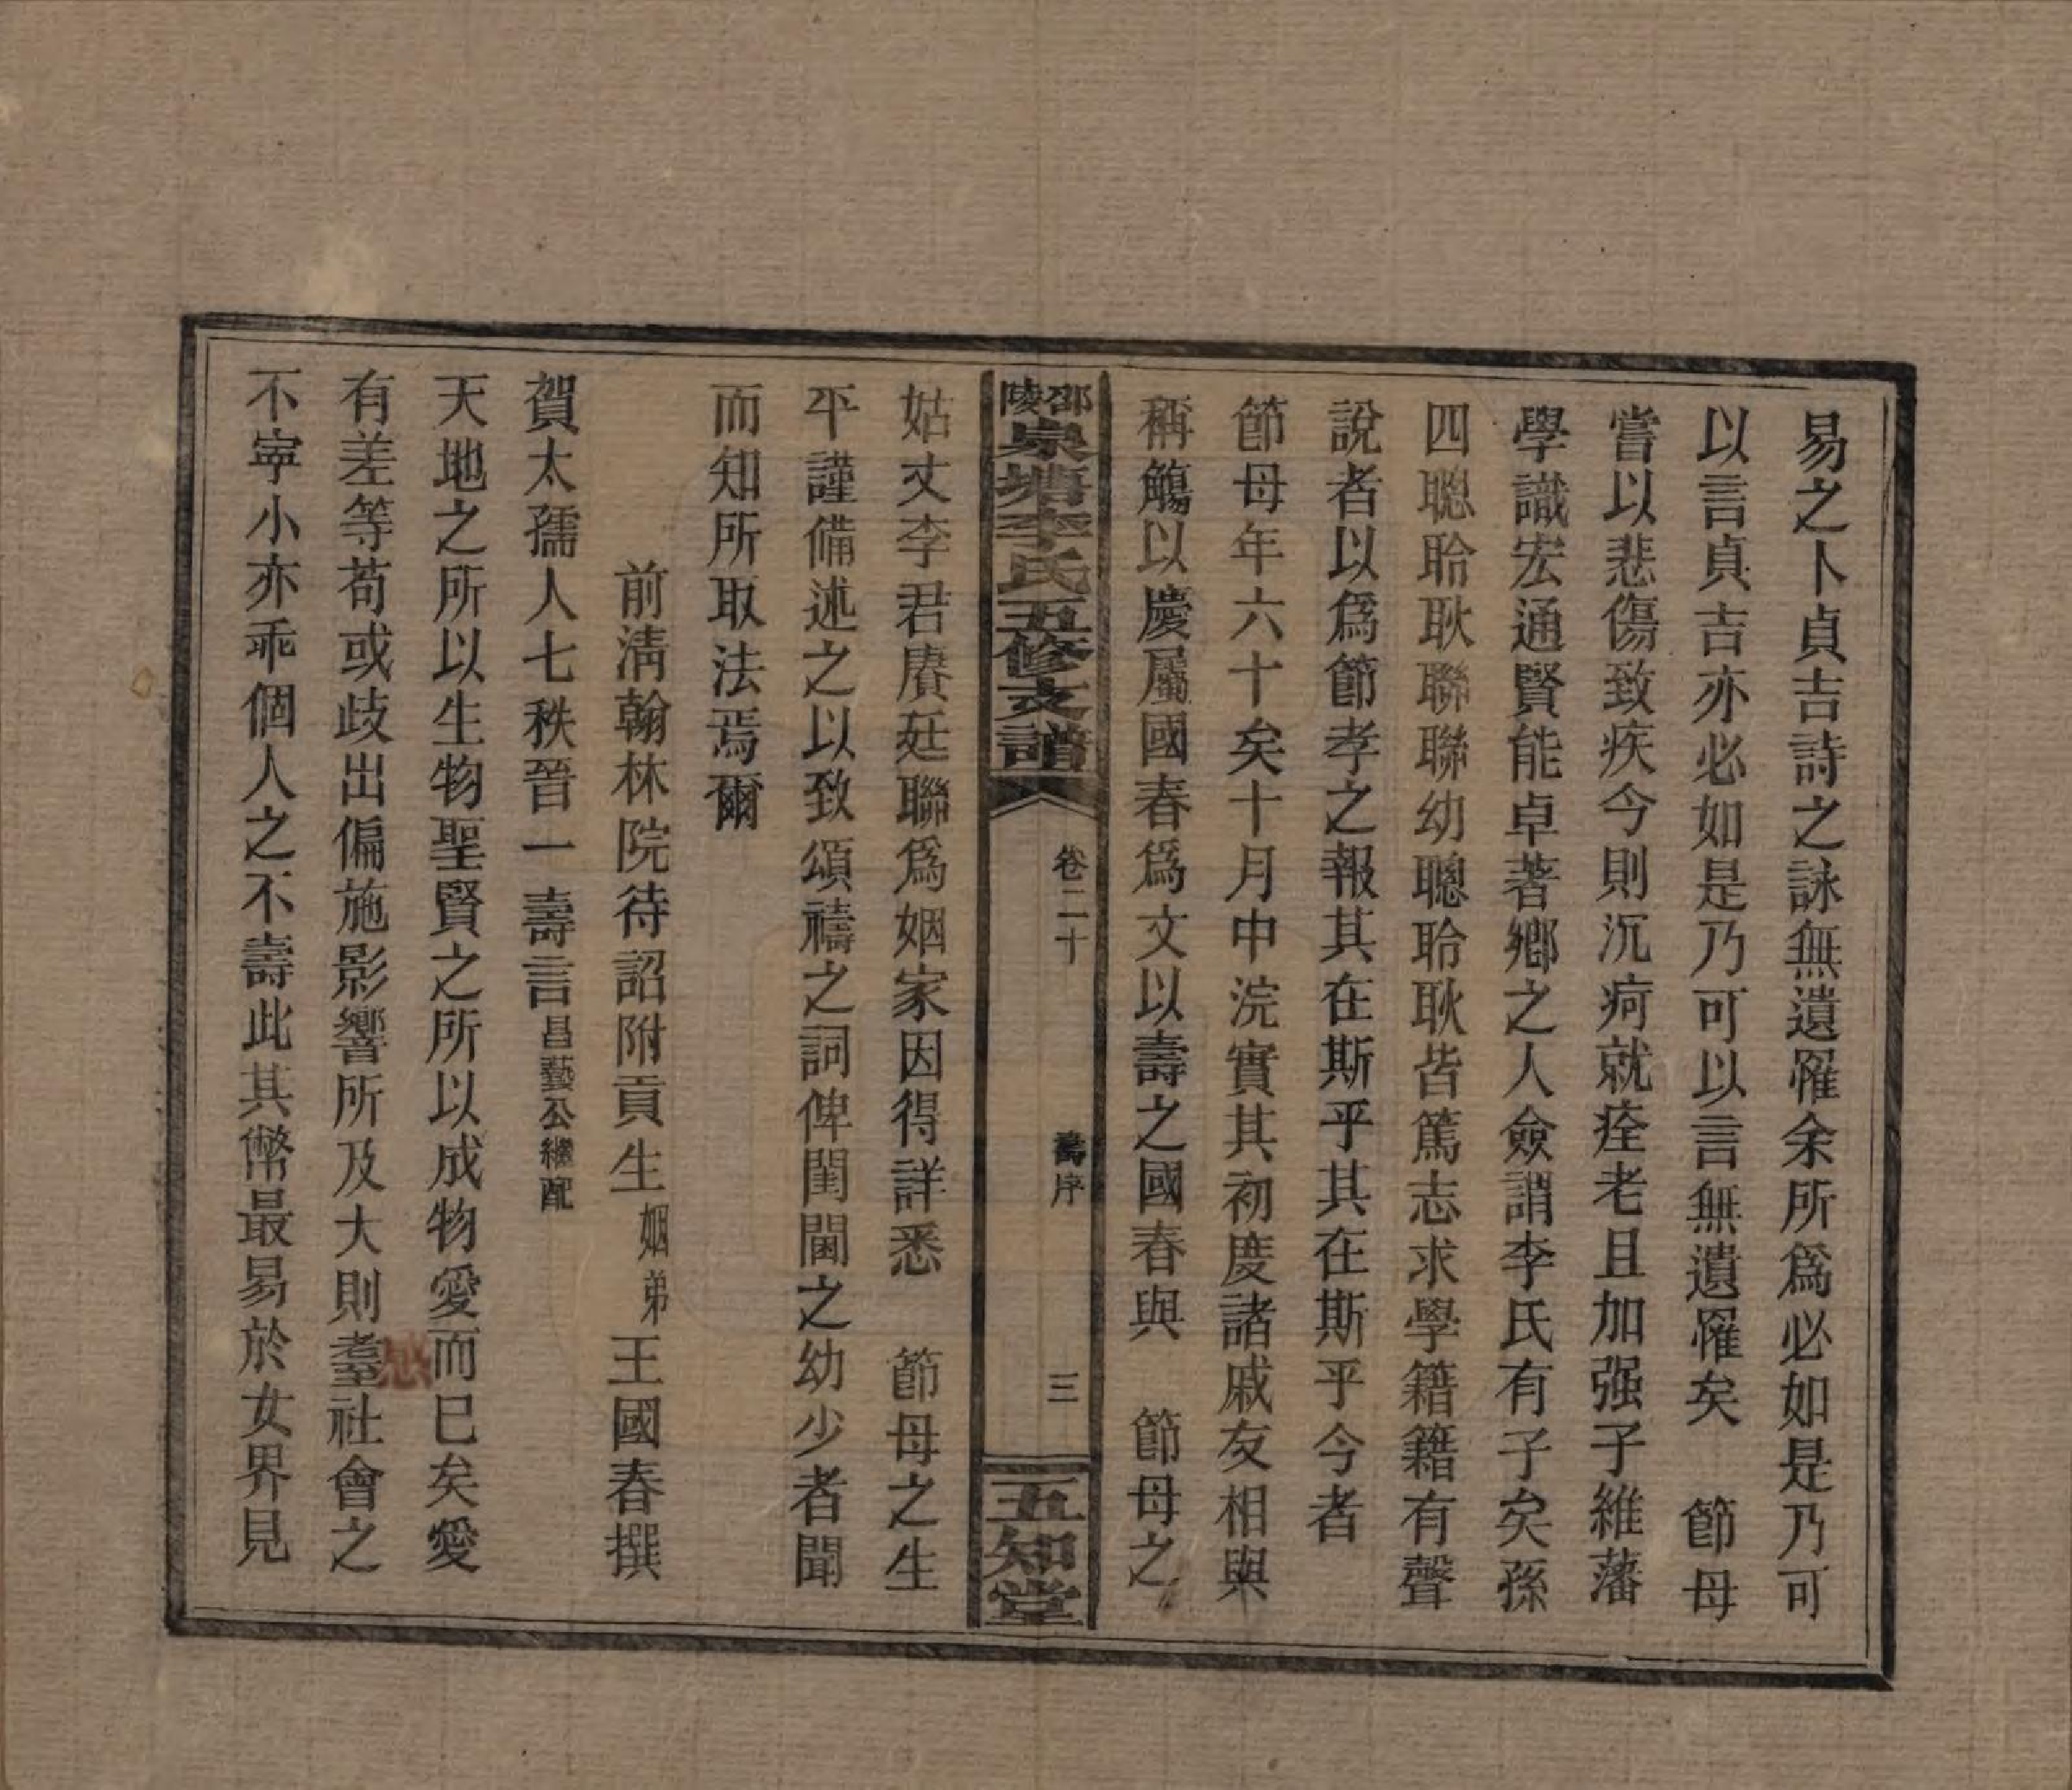 易之卜貞吉詩之詠無遺罹余所爲必如是乃可
以言貞吉亦必如是乃可以言無遺罹矣　節母
嘗以悲傷致疾今則沉疴就痊老且加强子維藩
學識宏通賢能卓著鄉之人僉謂李氏有子矣孫
四聰聆耿聯聯幼聰聆耿皆篤志求學籍籍有聲
說者以爲節孝之報其在斯乎其在斯乎今者
節母年六十矣十月中浣實其初度諸戚友相與
稱觴以慶屬國春爲文以壽之國春與　節母之
邵陵泉塘李氏五修支譜
卷二十
壽序
三
五知堂
姑丈李君賡廷聯爲姻家因得詳悉　節母之生
平謹備述之以致頌禱之詞俾閨閫之幼少者聞
而知所取法焉爾
前淸翰林院待詔附貢生姻弟王國春撰
賀太孺人七秩晉一壽言昌藝公繼配
天地之所以生物聖賢之所以成物愛而已矣愛
有差等苟或歧出偏施影響所及大則耋社會之
不寧小亦乖個人之不壽此其幣最易於女界見